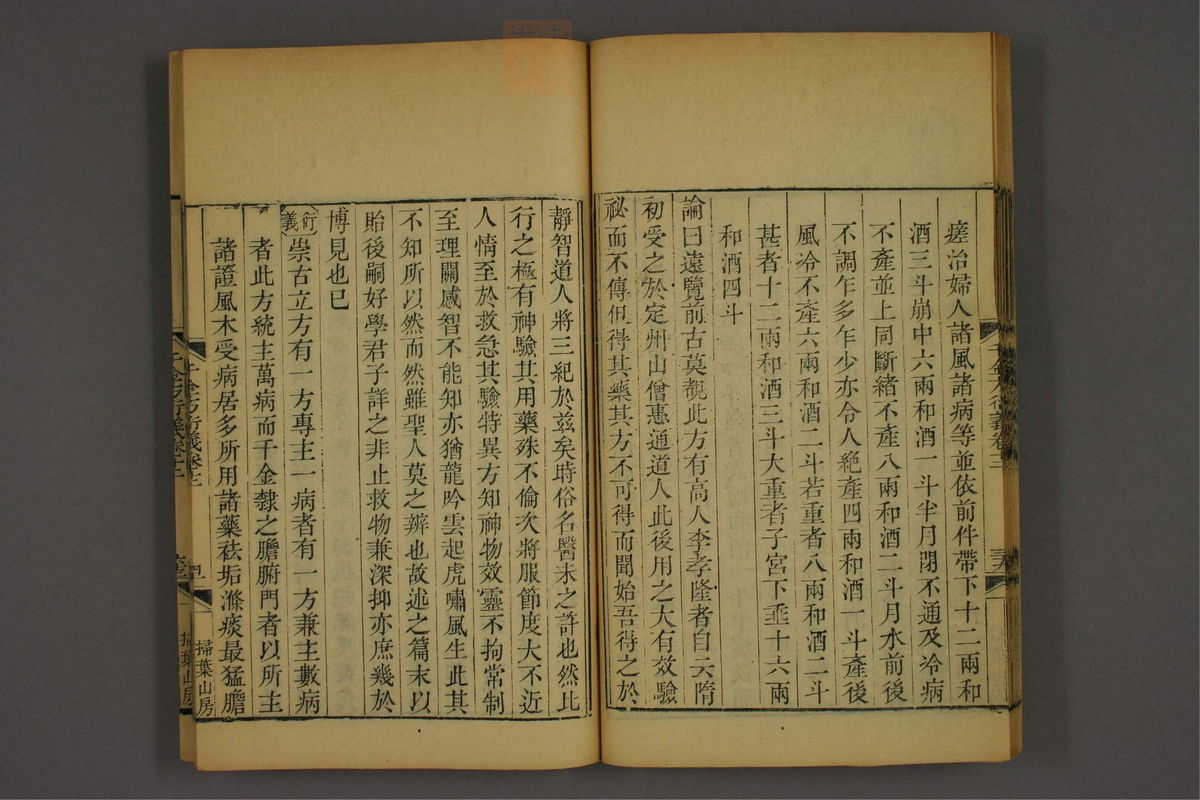 瘥治婦人諸風諸病等並依前件帶下十二兩和
酒三斗崩中六兩和酒一斗半月閉不通及冷病
不產並上同斷緒不產八兩和酒二斗月水前後
不調乍多乍少亦令人絕產四兩和酒一斗產後
風冷不產六兩和酒二斗若重者八兩和酒二斗
甚者十二兩和酒三斗大重者子宮下垂十六兩
和酒四斗
論曰遠覽前古莫覩此方有高人李孝隆者自云隋
初受之於定州山僧惠通道人此後用之大有效驗
祕而不傳但得其藥其方不可得而聞始吾得之於
靜智道人將三紀於玆矣時俗名醫未之許也然比
行之極有神驗其用藥殊不倫次將服節度大不近
人情至於救急其驗特異方知神物效靈不拘常制
至理關感智不能知亦猶龍吟雲起虎嘯風生此其
不知所以然而然雖聖人莫之辨也故述之篇末以
貽後嗣好學君子詳之非止救物兼深抑亦庶幾於
博見也已
衍義
崇古立方有一方專主一病者有一方兼主數病
者此方統主萬病而千金隸之膽腑門者以所主
諸證風木受病居多所用諸藥祛垢滌痰最猛膽
千金方衍義卷十二
掃葉山房